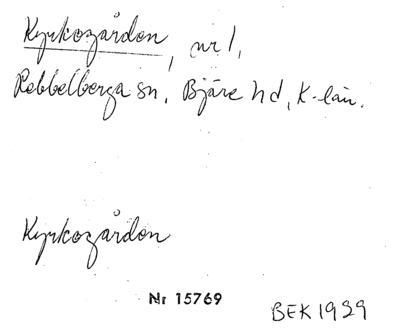 Kyrkogården, nr 1,
Rebbelberga sn, Bjäre hd, K-län.
Kyrkogården
Nr 15769
BEK 1939